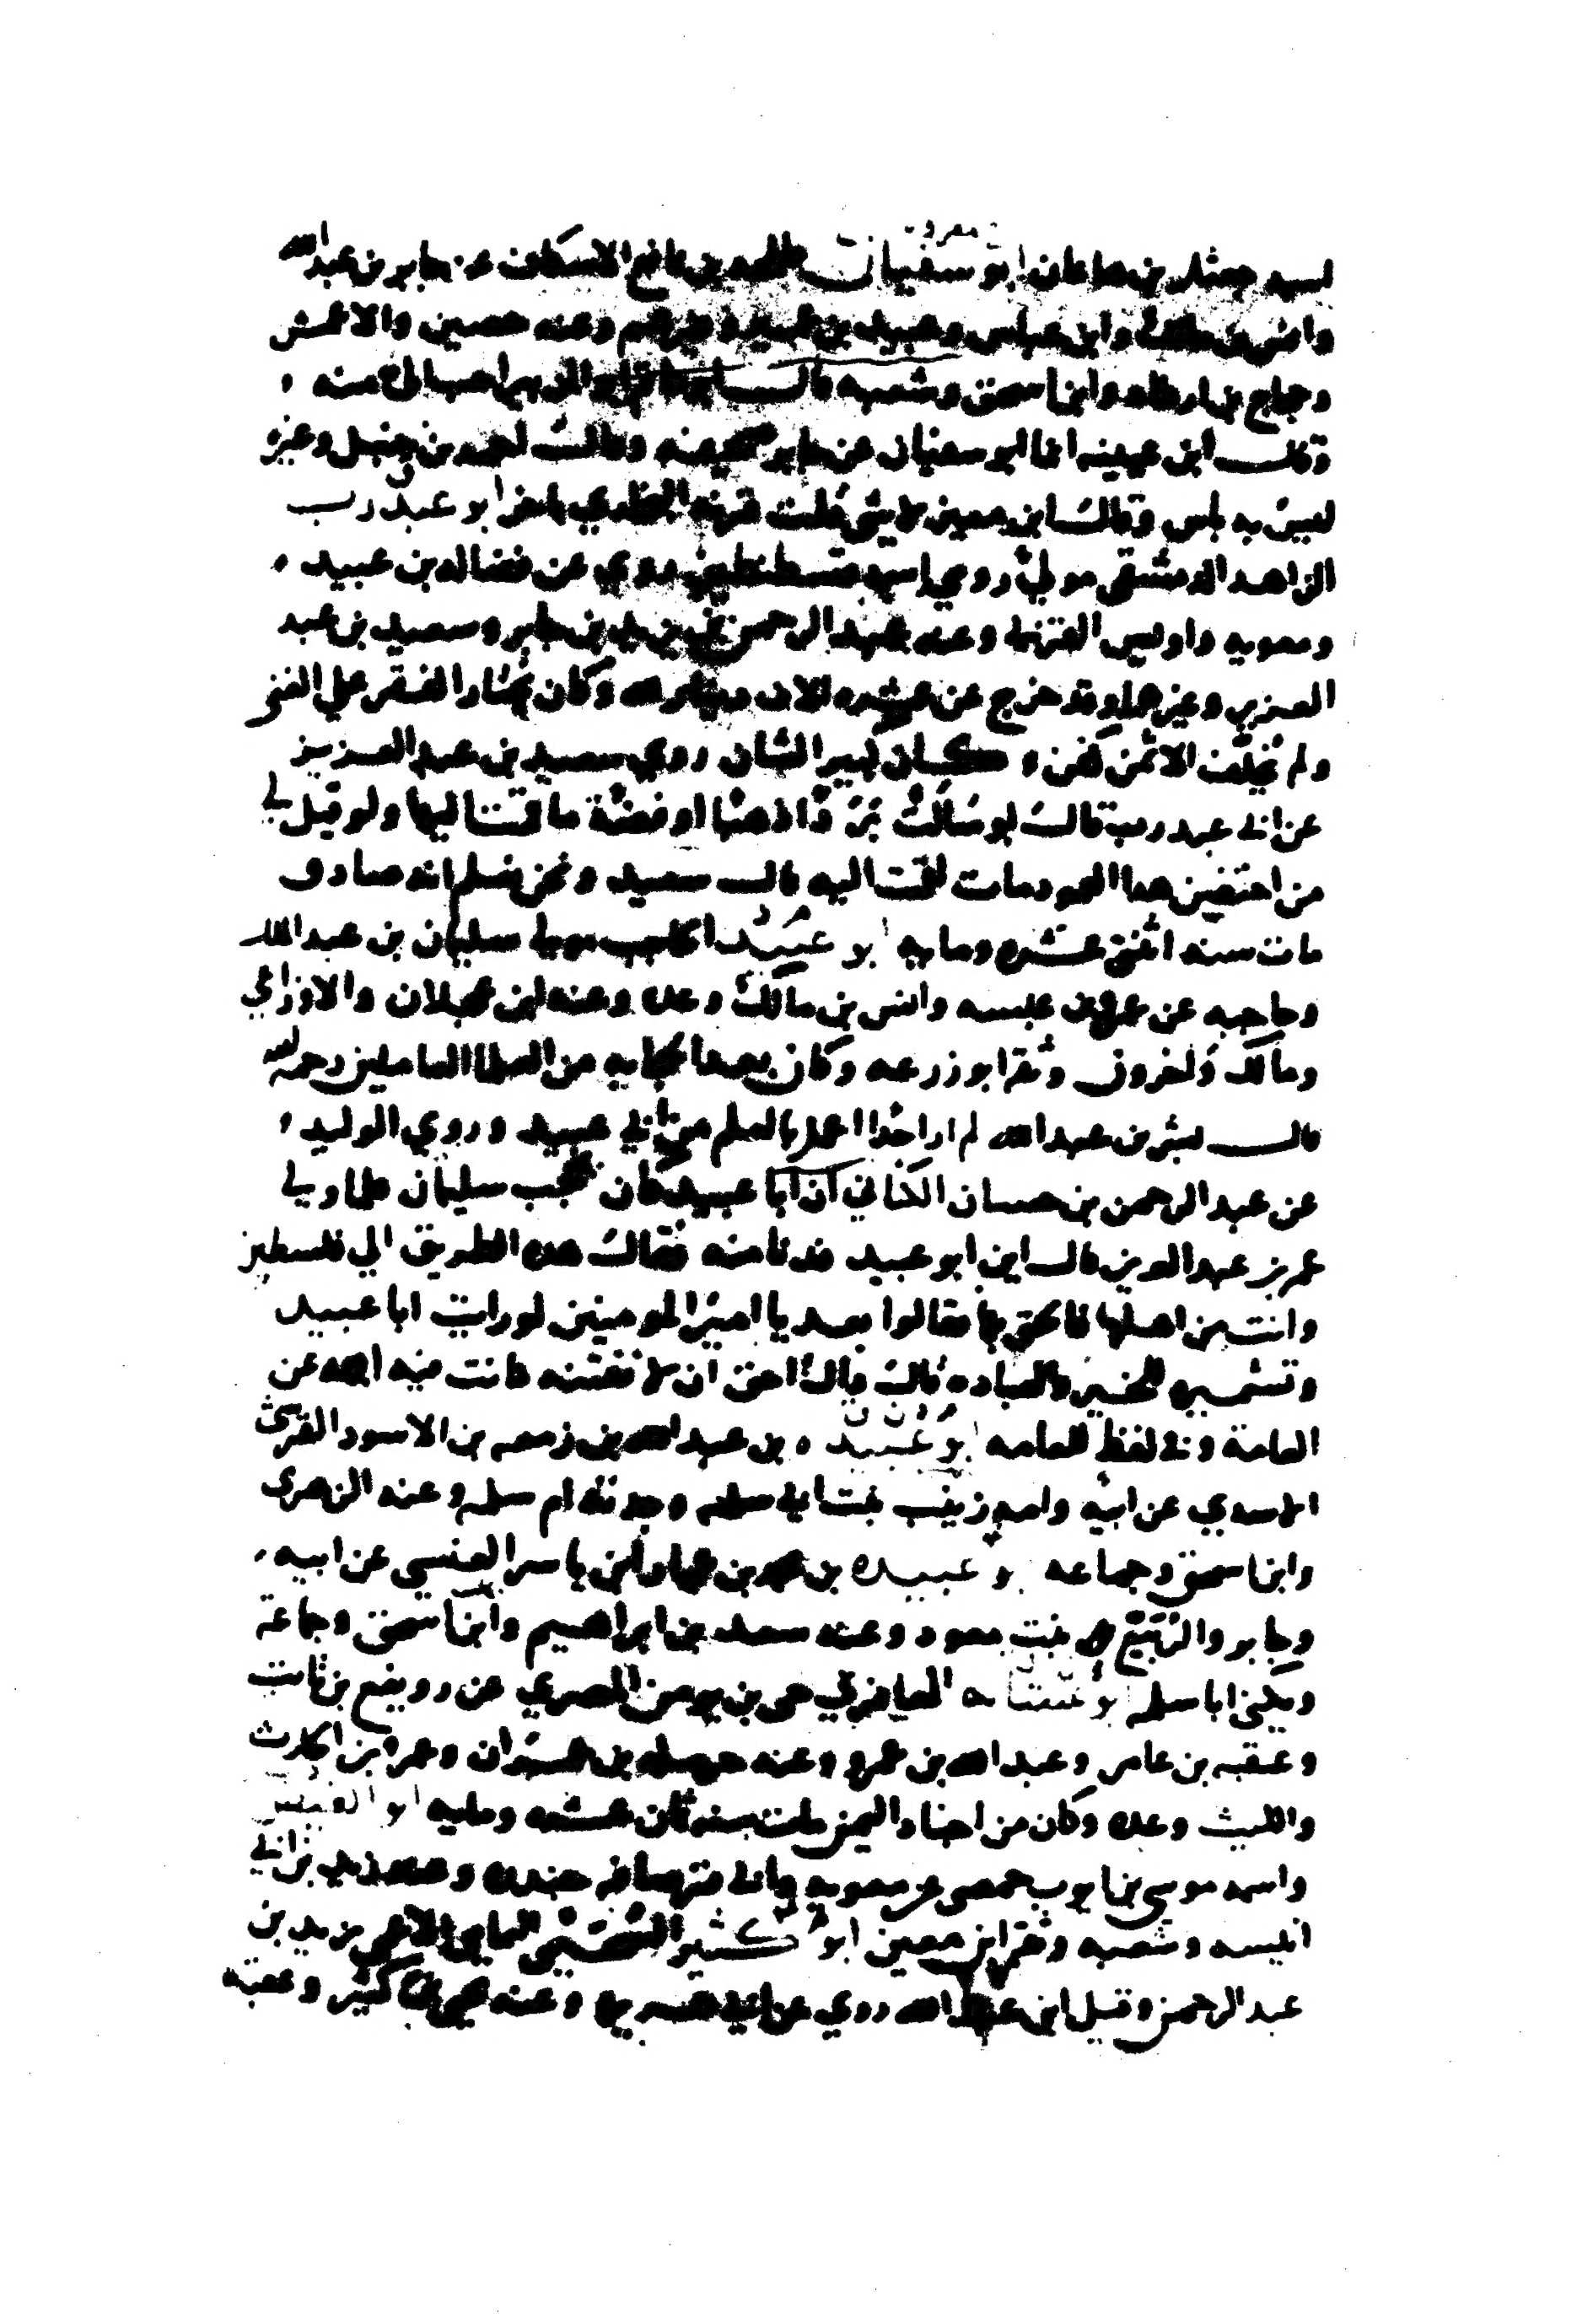 اسمه جعثل بن هاعان ابو سفيان طلحه بن نافع الاسكاف عن جابر بن عبد الله
وانس بن مالك وابن عباس وعبيد بن عمير وغيرهم وعنه حصين والاعمش
وحجاج بن ارطاه وابن اسحق وشعبه قال ابو الزبير احب الي منه
وقال ابن عيينه انما ابو سفيان عن جابر صحيفه وقال احمد بن حنبل وغيره
ليس به باس وقال ابن معين لا شي قلت قرنه البخاري باخر ابو عبد رب
الزاهد الدمشقي مولي رومي اسمه قسطنطين روي عن فضاله بن عبيد
ومعويه واويس القرني وعنه عبد الرحمن بن يزيد بن جابر وسعيد بن عبد
العزيز وغيرهما وقد خرج عن عشره الاف دينار لله وكان يختار الفقر علي الغني
ولم يخلف الا ثمن كفن وكان كبير الشان روي سعيد بن عبد العزيز
عن ابي عبد رب قال لو سالت بردا ذهبا او فضة ما قمت اليها ولو قيل لي
من احتضن هدا العمود مات لقمت اليه قال سعيد ونحن نعلم انه صادق
مات سنه اثنتي عشره ومايه ابو عبيد الحاجب مولي سليمان بن عبد الملك
وحاجبه عن عمرو بن عبسه وانس بن مالك وعده وعنه ابن عجلان والاوزاعي
ومالك واخرون وثقه ابو زرعه وكان بعد الحجابه من العلما العاملين رحمه الله
قال بشر بن عبد الله لم ار احدا اعمل بالعلم من ابي عبيد وروي الوليد
عن عبد الرحمن بن حسان الكناني ان ابا عبيد كان يحجب سليمان فلما ولي
عمر بن عبد العزيز قال اين ابو عبيد فدنا منه فقال هده الطريق الي فلسطين
وانت من اهلها فالحق بها فقالوا بعد يا امير المومنين لو رايت ابا عبيد
وتشميره للخير والعباده قال ذاك احق ان لا نفتنه كانت فيه ابهه عن
العامة وفي لفظ للعامه ابو عبيده بن عبد الله بن زمعه بن الاسود القرشي
الاسدي عن ابيه وامه زينب بنت ابي سلمه وجدته ام سلمه وعنه الزهري
وابن اسحق وجماعه ابو عبيده بن محمد بن عمار بن ياسر العنسي عن ابيه
وجابر والربيع بنت معوذ وعنه سعد بن ابراهيم وابن اسحق وجماعة
ويقال اسمه سلمه ابو عشانه المعافري حي بن يومن المصري عن رويفع بن ثابت
وعقبه بن عامر وعبد الله بن عمرو وعنه حرمله بن عمران وعمرو بن الحارث
والليث وعده وكان من احناد اليمن مات سنه ثمان عشره ومايه ابو الفيض
واسمه موسي بن ايوب حمصي عن معويه وابي قرصافه جندره وعنه زيد بن ابي
انيسه وشعبه وثقه ابن معين ابو كثير السحيمي اليمامي الاعمي يزيد بن
عبد الرحمن وقيل ابن عبد الله روي عن ابي هريره وعنه يحيي بن ابي كثير وعقبه